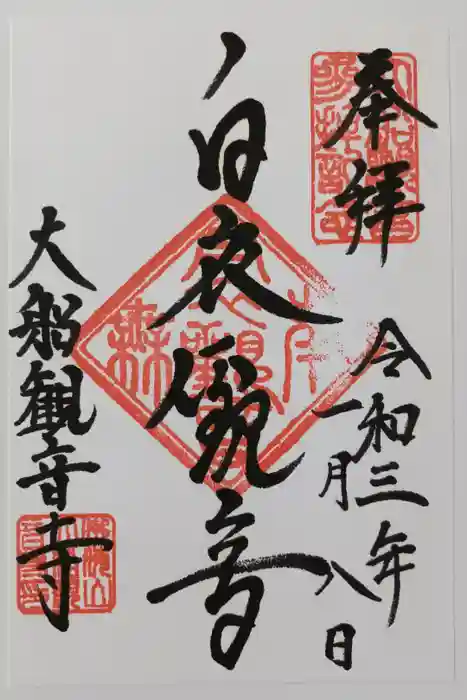 奉拝
令和三年
一月八日
白衣観音
大船観音寺